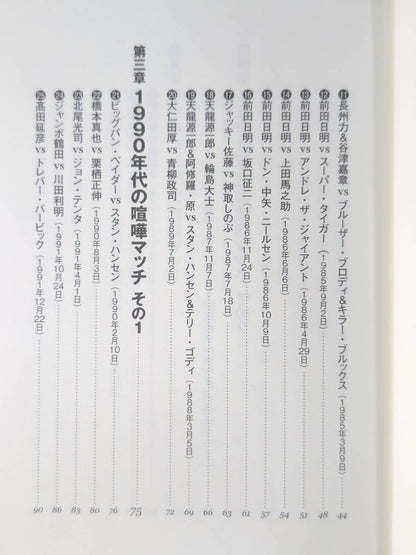 ⓫長州力&谷津嘉章 vs ブルーザー・ブロディ&キラー・ブルックス(1985年3月9日) 44
⓬前田日明 vs スーパー・タイガー(1985年9月2日) 48
⓭前田日明 vs アンドレ・ザ・ジャイアント(1986年4月29日) 51
⓮前田日明 vs 上田馬之助(1986年6月6日) 54
⓯前田日明 vs ドン・中矢・ニールセン(1986年10月9日) 57
⓰前田日明 vs 坂口征二(1986年11月24日) 61
⓱ジャッキー佐藤 vs 神取しのぶ(1987年7月18日) 63
⓲天龍源一郎 vs 輪島大士(1987年11月7日) 66
⓳天龍源一郎&阿修羅・原 vs スタン・ハンセン&テリー・ゴディ(1988年3月5日) 69
⓴大仁田厚 vs 青柳政司(1989年7月2日) 72
第三章 1990年代の喧嘩マッチ その1 75
㉑ビッグバン・ベイダー vs スタン・ハンセン(1990年2月10日) 76
㉒橋本真也 vs 栗栖正伸(1990年8月3日) 80
㉓北尾光司 vs ジョン・テンタ(1991年4月1日) 83
㉔ジャンボ鶴田 vs 川田利明(1991年10月24日) 86
㉕高田延彦 vs トレバー・バービック(1991年12月22日) 90